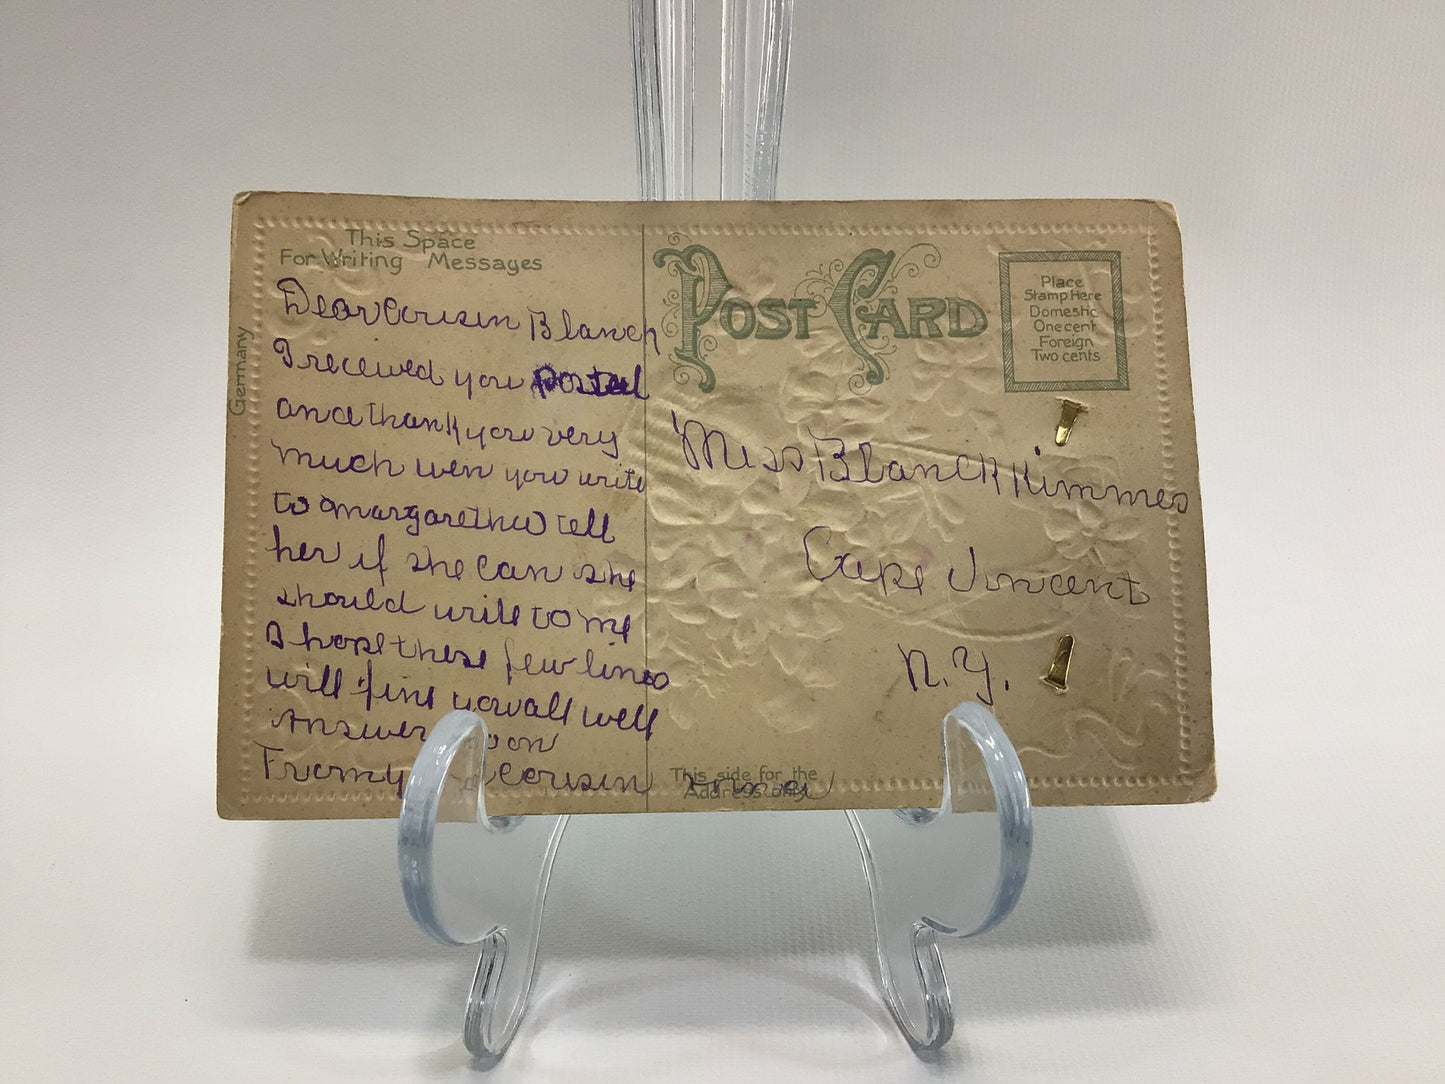 This Space
For Writing Messages
Germany
Dear Cousin Blanch
I received you postal
and thank you very
much wen you write
to margaretha tell
her if she can she
should write to me
I hope these few lines
will fint you all well
Answer soon
From y Cousin
POST CARD
Place
Stamp Here
Domestic
One cent
Foreign
Two cents
Miss Blanch Kimmes
Cape Vincent
N.Y.
This side for the
Address only